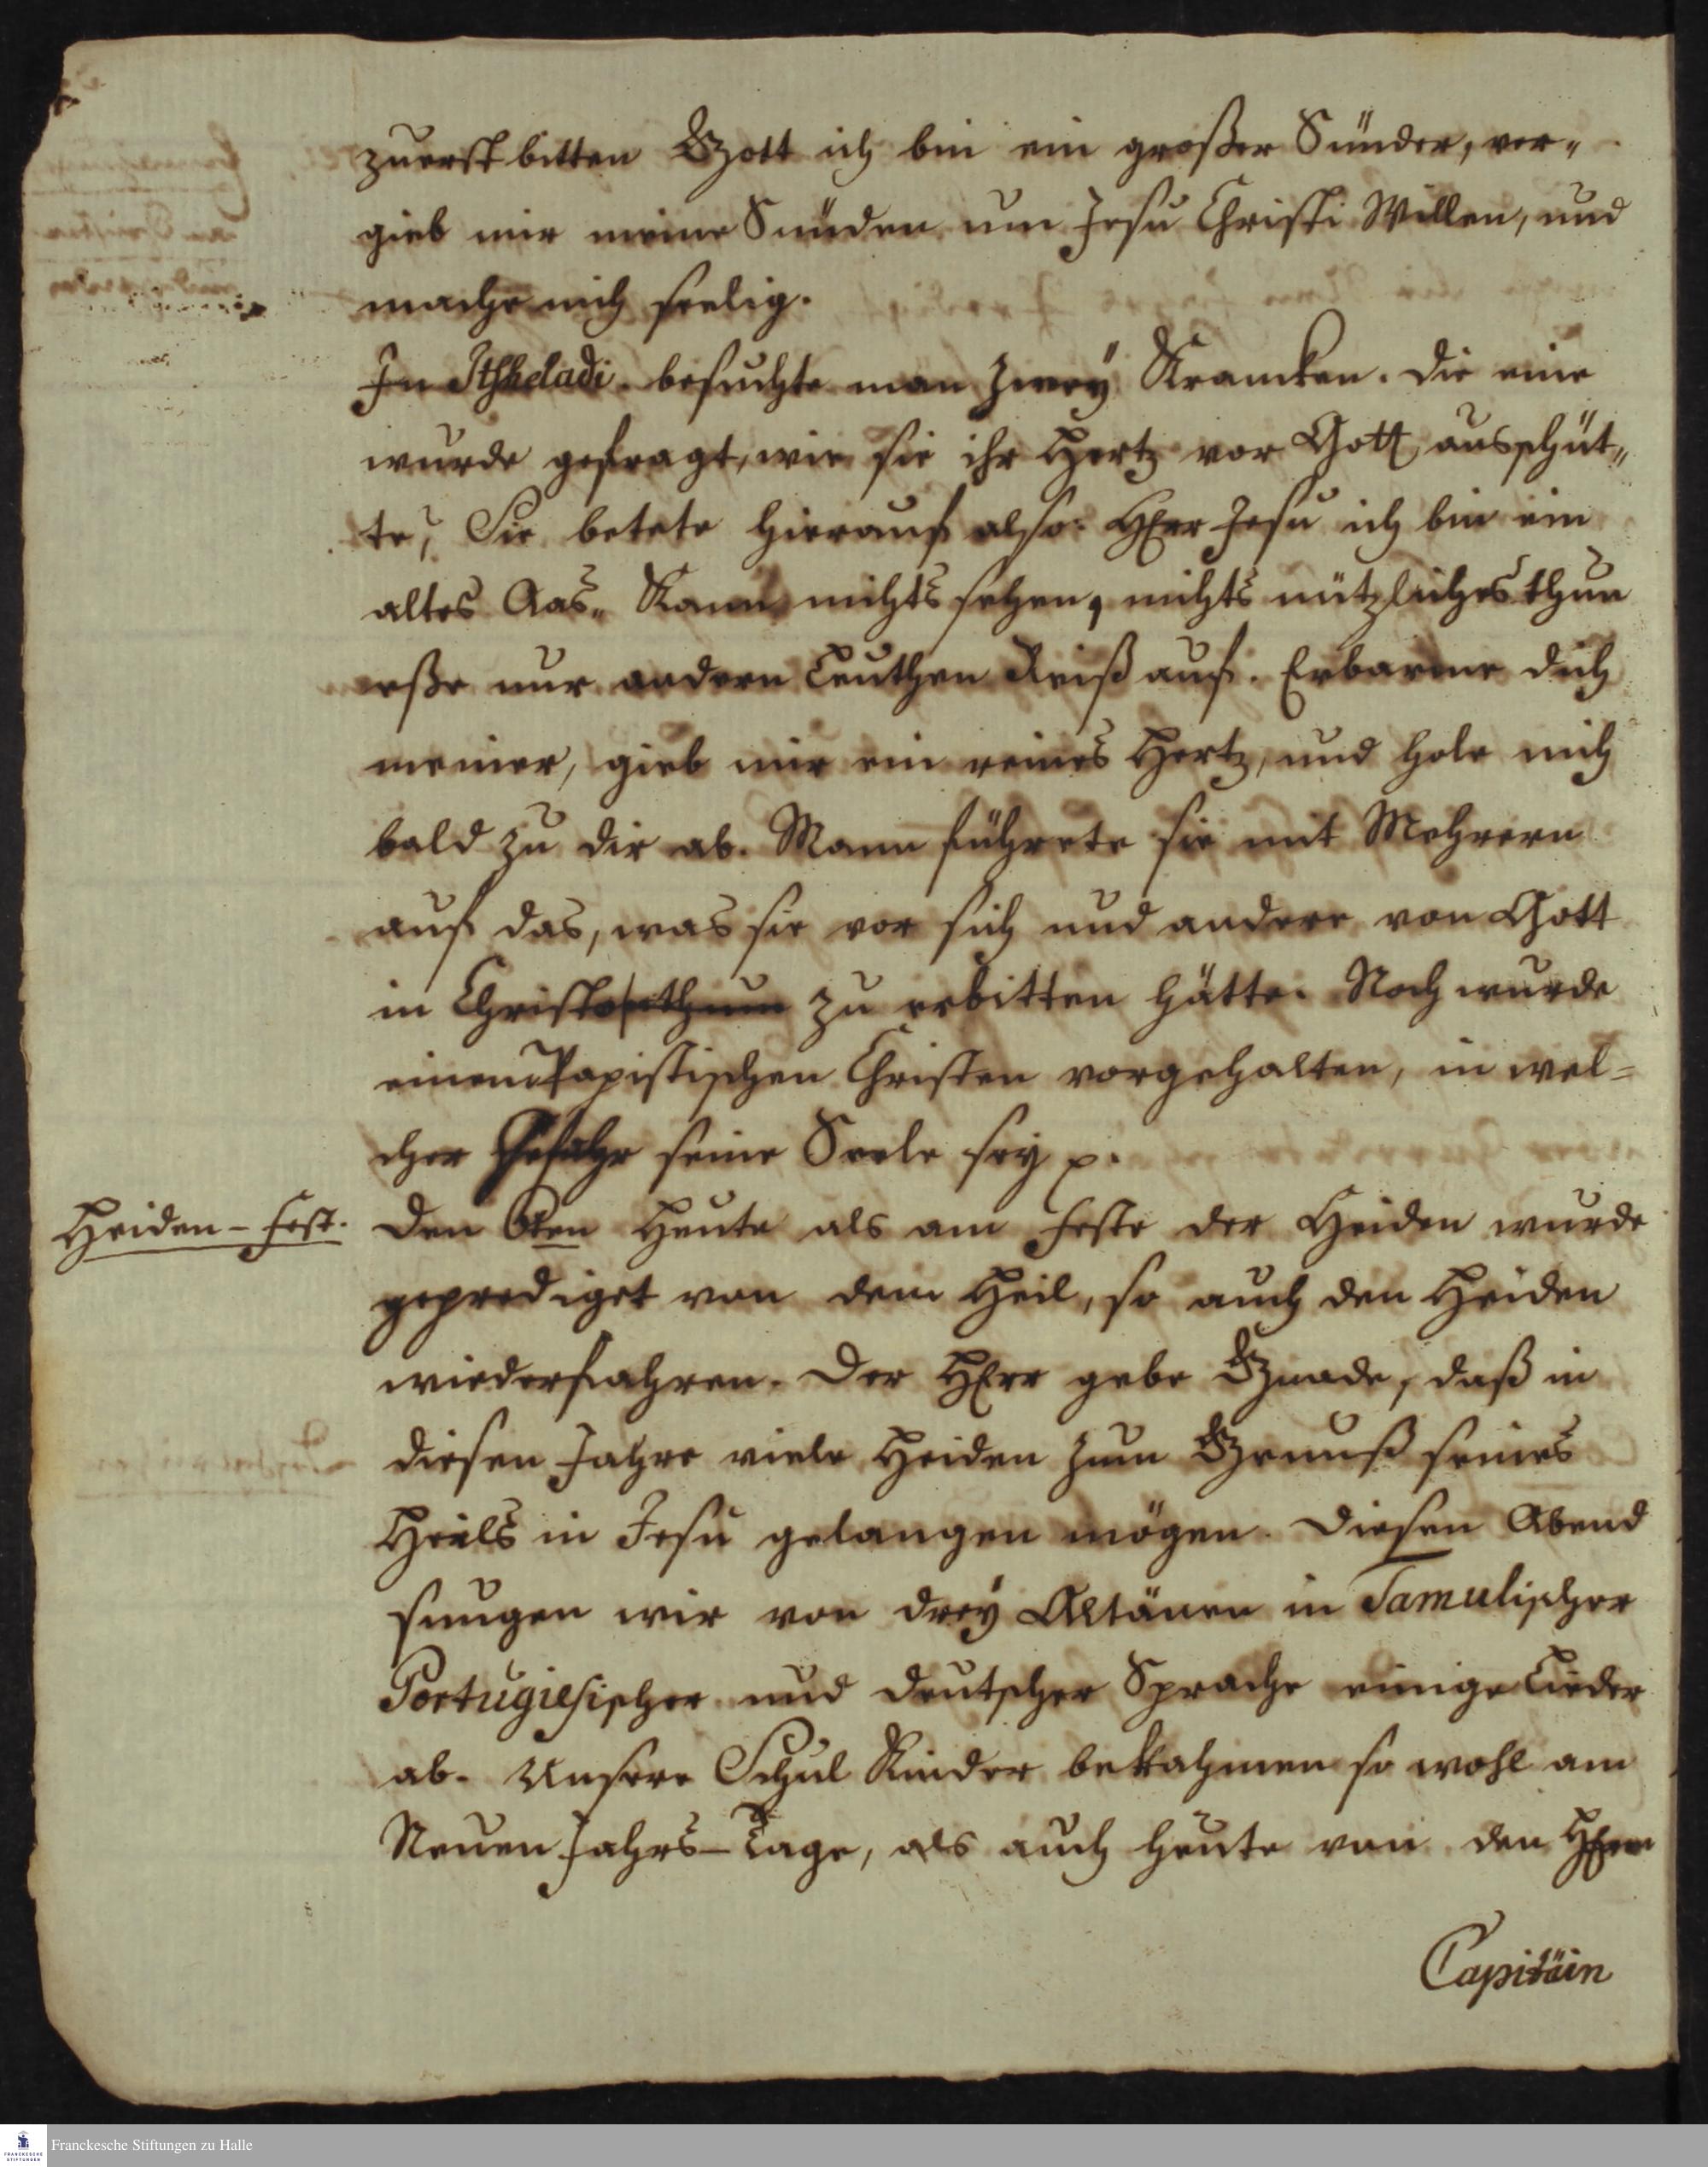 zuerst bitten Gott ich bin ein großer Sünder, ver„
gieb mir meine Sünden um Jesu Christi Willen, und
mache mich seelig.
In Itsheladi besuchte man zwey Krancken. Die eine
wurde gefragt, wie sie ihr Hertz vor Gott ausschüt„
te? Sie betete hierauf also: HErr Jesu ich bin ein
altes Aas„ Kann nichts sehen, nichts nützliches thun
eße nur andern Leuthen Reiß auf. Erbarme dich
meiner, gieb mir ein reines Hertz, und hole mich
bald zu dir ab. Mann führete sie mit Mehrern
auf das, was sie vor sich und andere von Gott
in Christo zu erbitten hätte. Noch wurde
einem Papistischen Christen vorgehalten, in wel=
cher Gefahr seine Seele sey p.
Heiden-Fest.
Den 6ten Heute als am Feste der Heiden wurde
geprediget von dem Heil, so auch den Heiden
wiederfahren. Der HErr gebe Gnade, daß in
diesen Jahre viele Heiden zum Genuß seines
Heils in Jesu gelangen mögen. Diesen Abend
sungen wir von drey Altänen in Tamulischer
Portugiesischer und deutscher Sprache einige Lieder
ab. Unsere Schul Kinder bekahmen so wohl am
Neuen Jahrs-Tage, als auch heute von den HErrn
Capitäin
Franckesche Stiftungen zu Halle